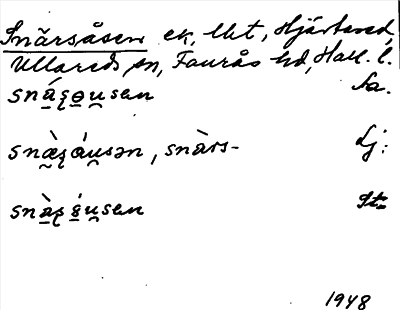 Snärsåsen ek, lht, Hjärtared,
Ullareds sn, Faurås hd, Hall. l.
sná̱ʂo̱u̯sen Sa.
snæ̀ʂáu̯sən, snàrs- Lj:
snà̱ʂá̱u̯sen St:
1948